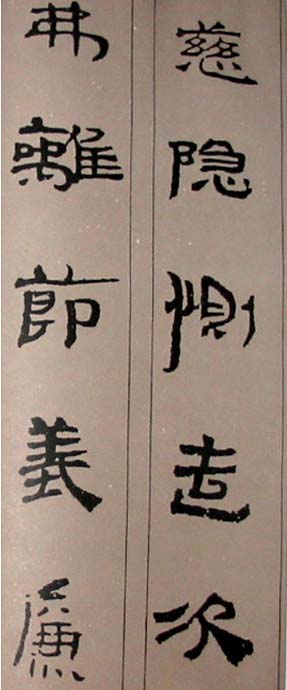 慈隐恻造次
弗離節義廉